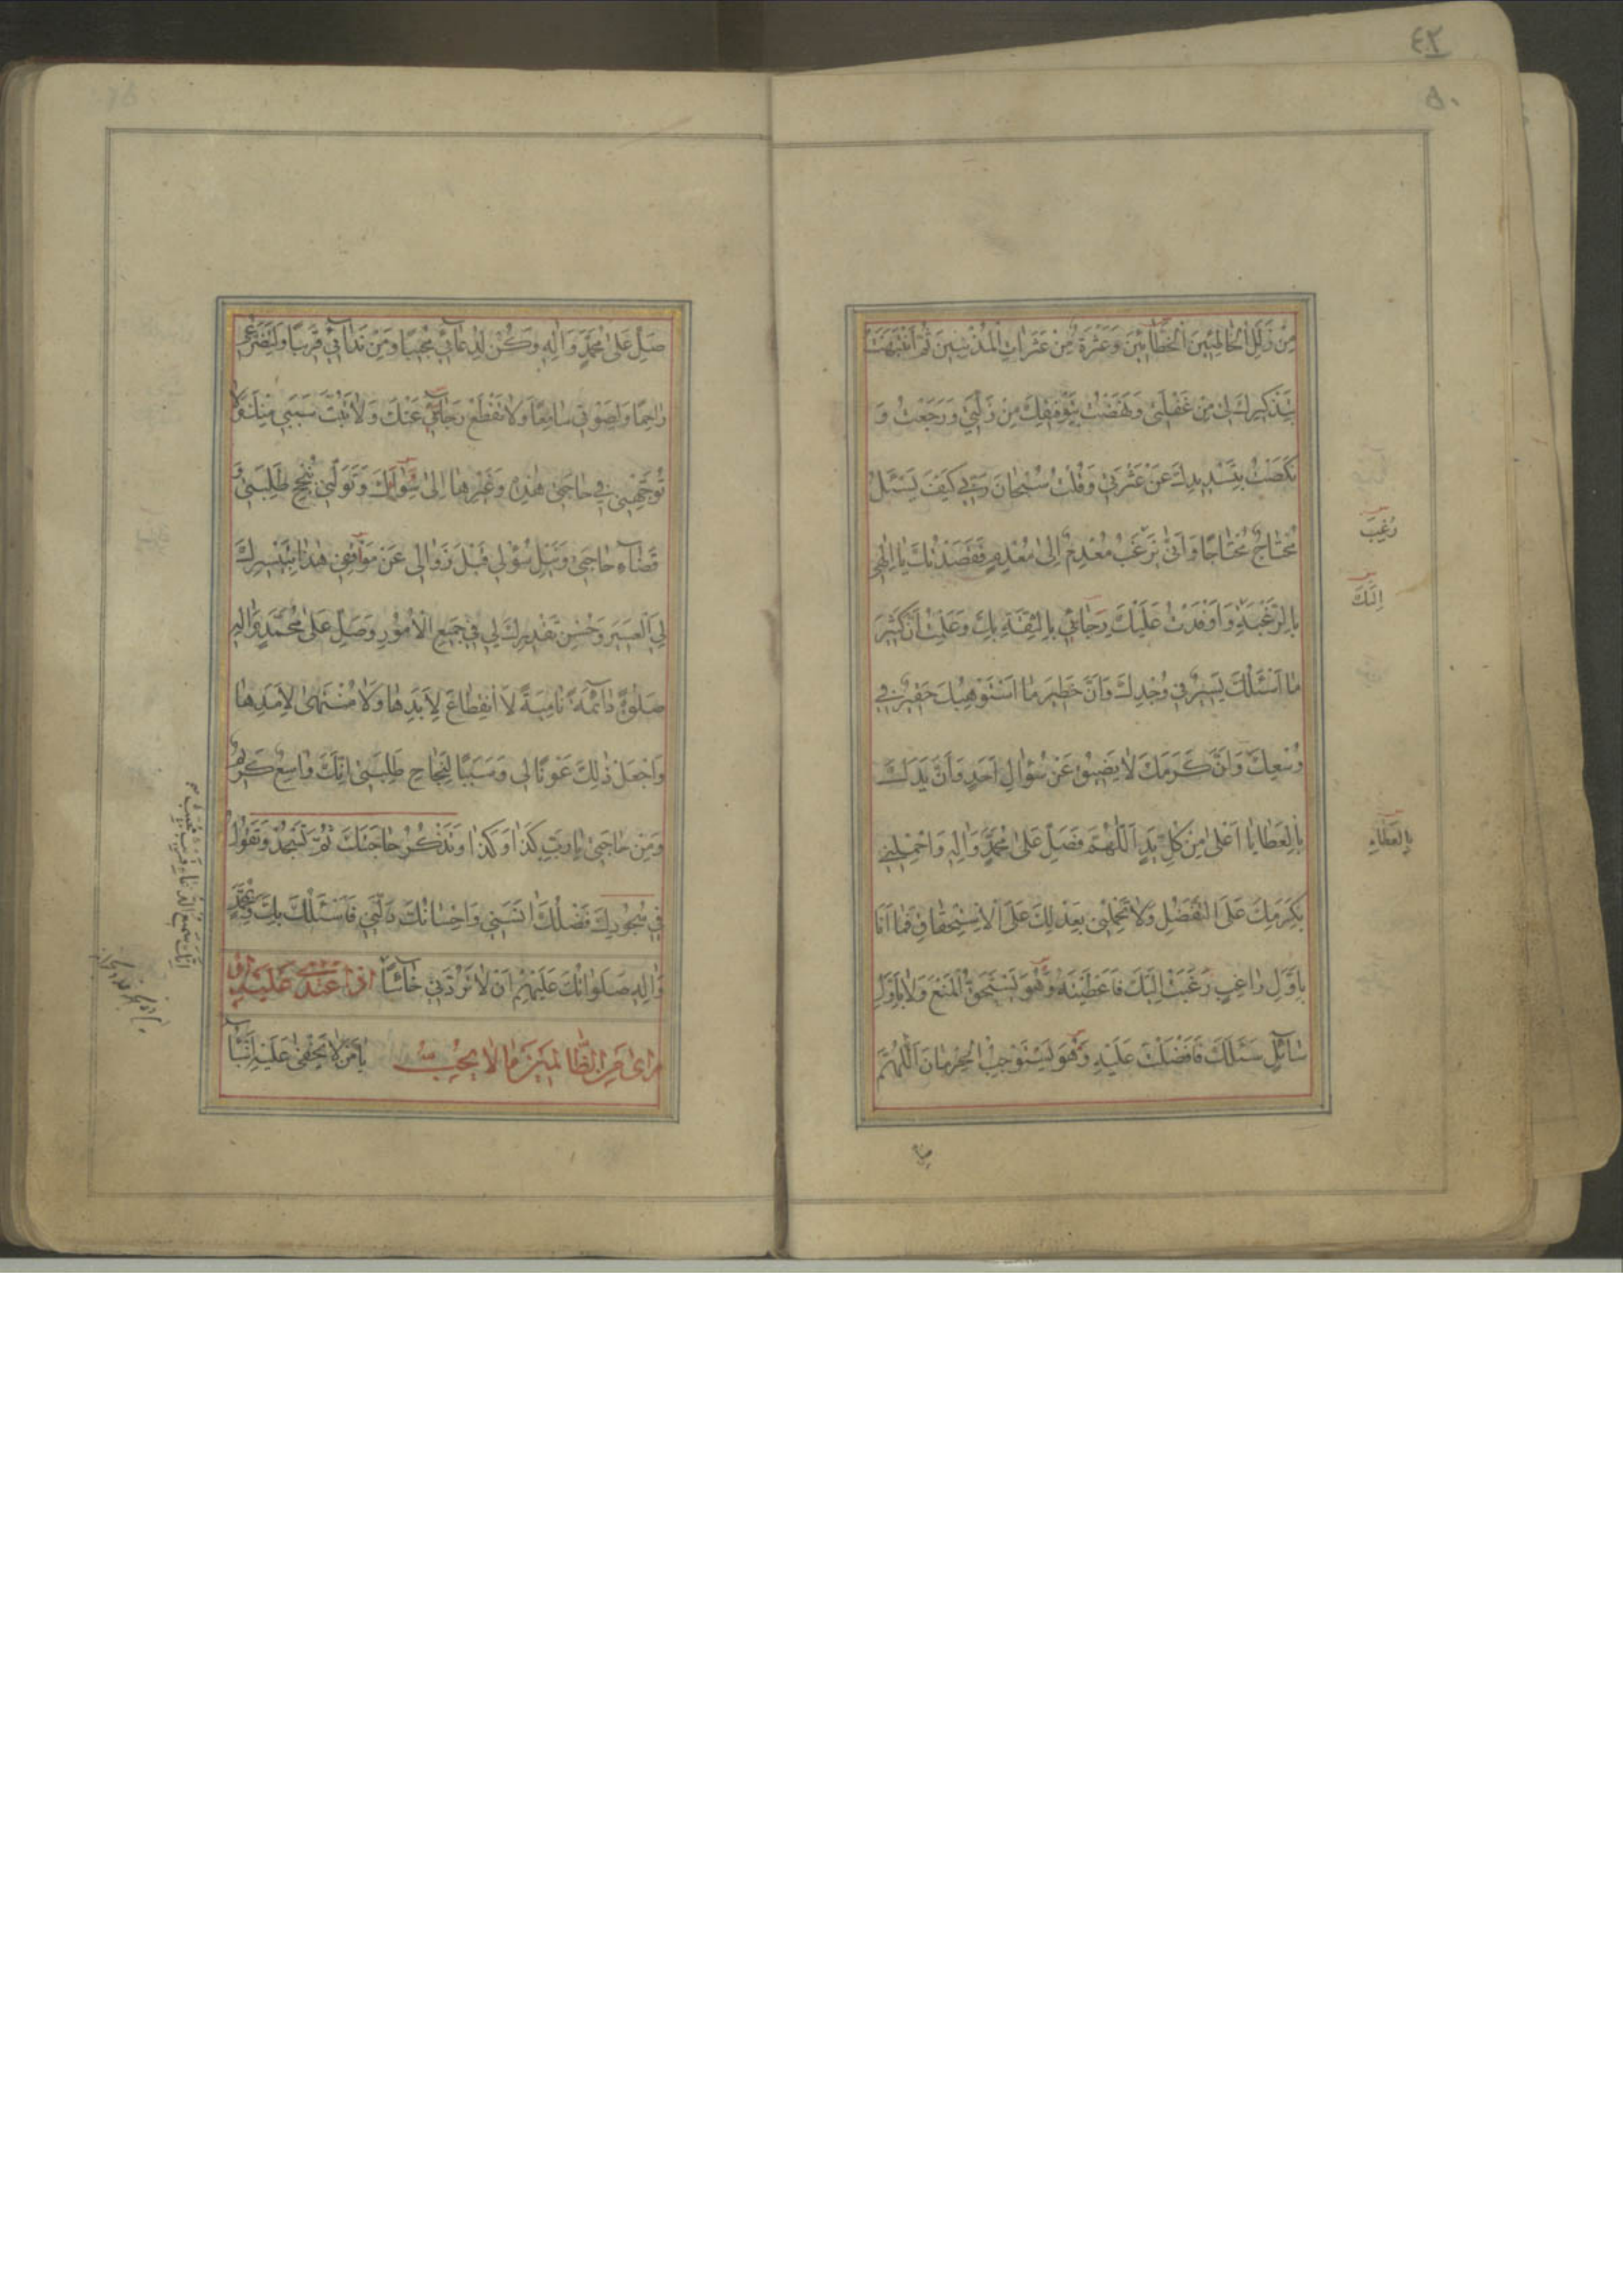 ٤٢
٥٠
مِنْ زَلَلِ الْخَاطِئِينَ وَعَثْرَةٌ مِنْ عَثَرَاتِ الْمُذْنِبِينَ ثُمَّ انْتَبَهْتُ
بِتَذْكِيرِكَ لِي مِنْ غَفْلَتِي وَنَهَضْتُ بِتَوْفِيقِكَ مِنْ زَلَّتِي وَرَجَعْتُ وَ
نَكَصْتُ بِتَسْدِيدِكَ عَنْ عَثْرَتِي وَقُلْتُ سُبْحَانَ رَبِّي كَيْفَ يَسْئَلُ
مُحْتَاجٌ مُحْتَاجًا وَاَنّٰى يَرْغَبُ مُعْدِمٌ اِلٰى مُعْدِمٍ فَقَصَدْتُكَ يَا اِلٰهِي
بِالرَّغْبَةِ وَاَوْفَدْتُ عَلَيْكَ رَجَائِي بِالثِّقَةِ بِكَ وَعَلِمْتُ اَنَّ كَثِيرَ
مَا اَسْئَلُكَ يَسِيرٌ فِي وُجْدِكَ وَاَنَّ خَطِيرَ مَا اَسْتَوْهِبُكَ حَقِيرٌ فِي
وُسْعِكَ وَاَنَّ كَرَمَكَ لَا يَضِيقُ عَنْ سُؤَالِ اَحَدٍ وَاَنَّ يَدَكَ
بِالْعَطَايَا اَعْلٰى مِنْ كُلِّ يَدٍ اَللّٰهُمَّ فَصَلِّ عَلٰى مُحَمَّدٍ وَاٰلِهِ وَاحْمِلْنِي
بِكَرَمِكَ عَلَى التَّفَضُّلِ وَلَا تَحْمِلْنِي بِعَدْلِكَ عَلَى الْاِسْتِحْقَاقِ فَمَا اَنَا
بِاَوَّلِ رَاغِبٍ رَغِبَ اِلَيْكَ فَاَعْطَيْتَهُ وَهُوَ يَسْتَحِقُّ الْمَنْعَ وَلَا بِاَوَّلِ
سَائِلٍ سَئَلَكَ فَاَفْضَلْتَ عَلَيْهِ وَهُوَ يَسْتَوْجِبُ الْحِرْمَانَ اَللّٰهُمَّ
رَغِبَ
اِلَيْكَ
بِالْعَطَاءِ
صَلِّ عَلٰى مُحَمَّدٍ وَاٰلِهِ وَكُنْ لِدُعَائِي مُجِيبًا وَمِنْ نِدَائِي قَرِيبًا وَلِتَضَرُّعِي
رَاحِمًا وَلِصَوْتِي سَامِعًا وَلَا تَقْطَعْ رَجَائِي عَنْكَ وَلَا تَبُتَّ سَبَبِي مِنْكَ وَلَا
تُوَجِّهْنِي فِي حَاجَتِي هٰذِهِ وَغَيْرِهَا اِلٰى سِوَاكَ وَتَوَلَّنِي بِنُجْحِ طَلِبَتِي وَ
قَضَاءِ حَاجَتِي وَنَيْلِ سُؤْلِي قَبْلَ زَوَالِي عَنْ مَوْقِفِي هٰذَا بِتَيْسِيرِكَ
لِيَ الْعَسِيرَ وَحُسْنِ تَقْدِيرِكَ لِي فِي جَمِيعِ الْاُمُورِ وَصَلِّ عَلٰى مُحَمَّدٍ وَاٰلِهِ
صَلٰوةً دَائِمَةً نَامِيَةً لَا انْقِطَاعَ لِاَبَدِهَا وَلَا مُنْتَهٰى لِاَمَدِهَا
وَاجْعَلْ ذٰلِكَ عَوْنًا لِي وَسَبَبًا لِنَجَاحِ طَلِبَتِي اِنَّكَ وَاسِعٌ كَرِيمٌ
وَمِنْ حَاجَتِي يَا رَبِّ كَذَا وَكَذَا وَتَذْكُرُ حَاجَتَكَ ثُمَّ تَسْجُدُ وَتَقُولُ
فِي سُجُودِكَ فَضْلُكَ اٰنَسَنِي وَاِحْسَانُكَ دَلَّنِي فَاَسْئَلُكَ بِكَ وَبِمُحَمَّدٍ
وَاٰلِهِ صَلَوَاتُكَ عَلَيْهِمْ اَنْ لَا تَرُدَّنِي خَائِبًا اذا اعتدى عليه او
راى من الظالمين ما لا يحب يَا مَنْ لَا يَخْفٰى عَلَيْهِ اَنْبَاءُ
اِنَّكَ سَمِيعُ الدُّعَاءِ قَرِيبٌ مُجِيبٌ